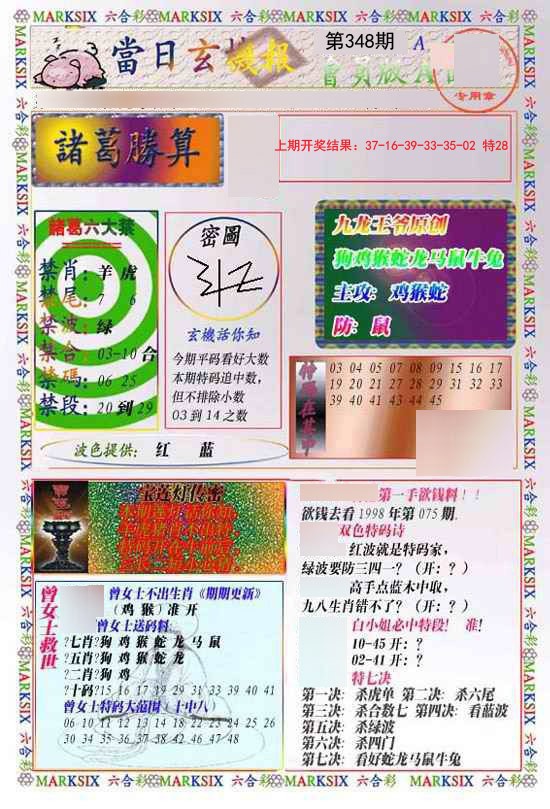 MARKSIX 六合彩 MARKSIX 六合彩 MARKSIX 六合彩 MARKSIX 六合彩
當日玄機報
第348期
A
會員版
专用章
諸葛勝算
上期开奖结果：37-16-39-33-35-02 特28
諸葛六大禁
禁肖：羊 虎
禁尾：7 6
禁波：绿
禁合：03-10合
禁碼：06 25
禁段：20到29
密圖
玄機活你知
今期平码看好大数
本期特码追中数，
但不排除小数
03到14之数
九龙王爷原创
狗鸡猴蛇龙马鼠牛兔
主攻：鸡猴蛇
防：鼠
03 04 05 07 08 09 15 16 17
19 20 21 27 28 29 31 32 33
39 40 41 43 44 45
波色提供： 红 蓝
宝莲灯传密
曾女士救世
曾女士不出生肖《期期更新》
（鸡猴）准开
曾女士送码料：
?七肖?狗鸡猴蛇龙马鼠
?五肖?狗鸡猴蛇龙
?二肖?狗鸡
?十码?15 16 17 19 29 31 33 39 40 41
曾女士特码大范围（十中八）
06 10 11 12 13 14 18 22 23 24 25 26
30 34 35 36 37 38 42 46 47 48
第一手欲钱料！！
欲钱去看1998年第075期.
双色特码诗
红波就是特码家，
绿波要防三四一？（开：？）
高手点蓝木中取，
九八生肖错不了？（开：？）
白小姐必中特段！ 准！
10-45 开：？
02-41 开：？
特七决
第一决：杀虎单 第二决：杀六尾
第三决：杀合数七 第四决：看蓝波
第五决：杀绿波
第六决：杀四门
第七决：看好蛇龙马鼠牛兔
MARKSIX 六合彩 MARKSIX 六合彩 MARKSIX 六合彩 MARKSIX 六合彩